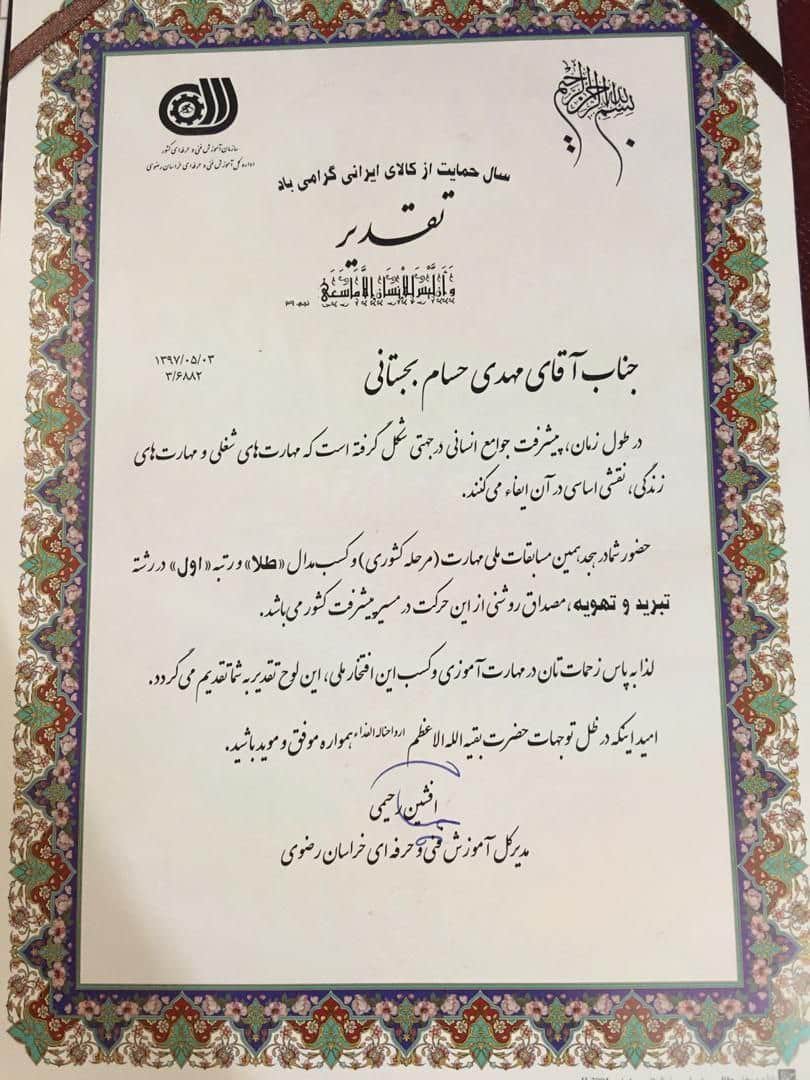 بسم الله الرحمن الرحیم
سازمان آموزش فنی و حرفه‌ای کشور
اداره کل آموزش فنی و حرفه‌ای خراسان رضوی
سال حمایت از کالای ایرانی گرامی باد
تقدیر
وَ أَن لَّیْسَ لِلْإِنسَانِ إِلَّا مَا سَعَیٰ
نجم، ۳۹
۱۳۹۷/۰۵/۰۳
۳/۶۸۸۲
جناب آقای مهدی حسام بجستانی
در طول زمان، پیشرفت جوامع انسانی در جهتی شکل گرفته است که مهارت‌های شغلی و مهارت‌های
زندگی، نقشی اساسی در آن ایفاء می‌کنند.
حضور شما در هجدهمین مسابقات ملی مهارت (مرحله کشوری) و کسب مدال «طلا» و رتبه «اول» در رشته
تبرید و تهویه، مصداق روشنی از این حرکت در مسیر پیشرفت کشور می‌باشد.
لذا به پاس زحمات تان در مهارت آموزی و کسب این افتخار ملی، این لوح تقدیر به شما تقدیم می‌گردد.
امید اینکه در ظل توجهات حضرت بقیه الله الاعظم ارواحناله الفداء همواره موفق و موید باشید.
افشین رحیمی
مدیرکل آموزش فنی و حرفه ای خراسان رضوی